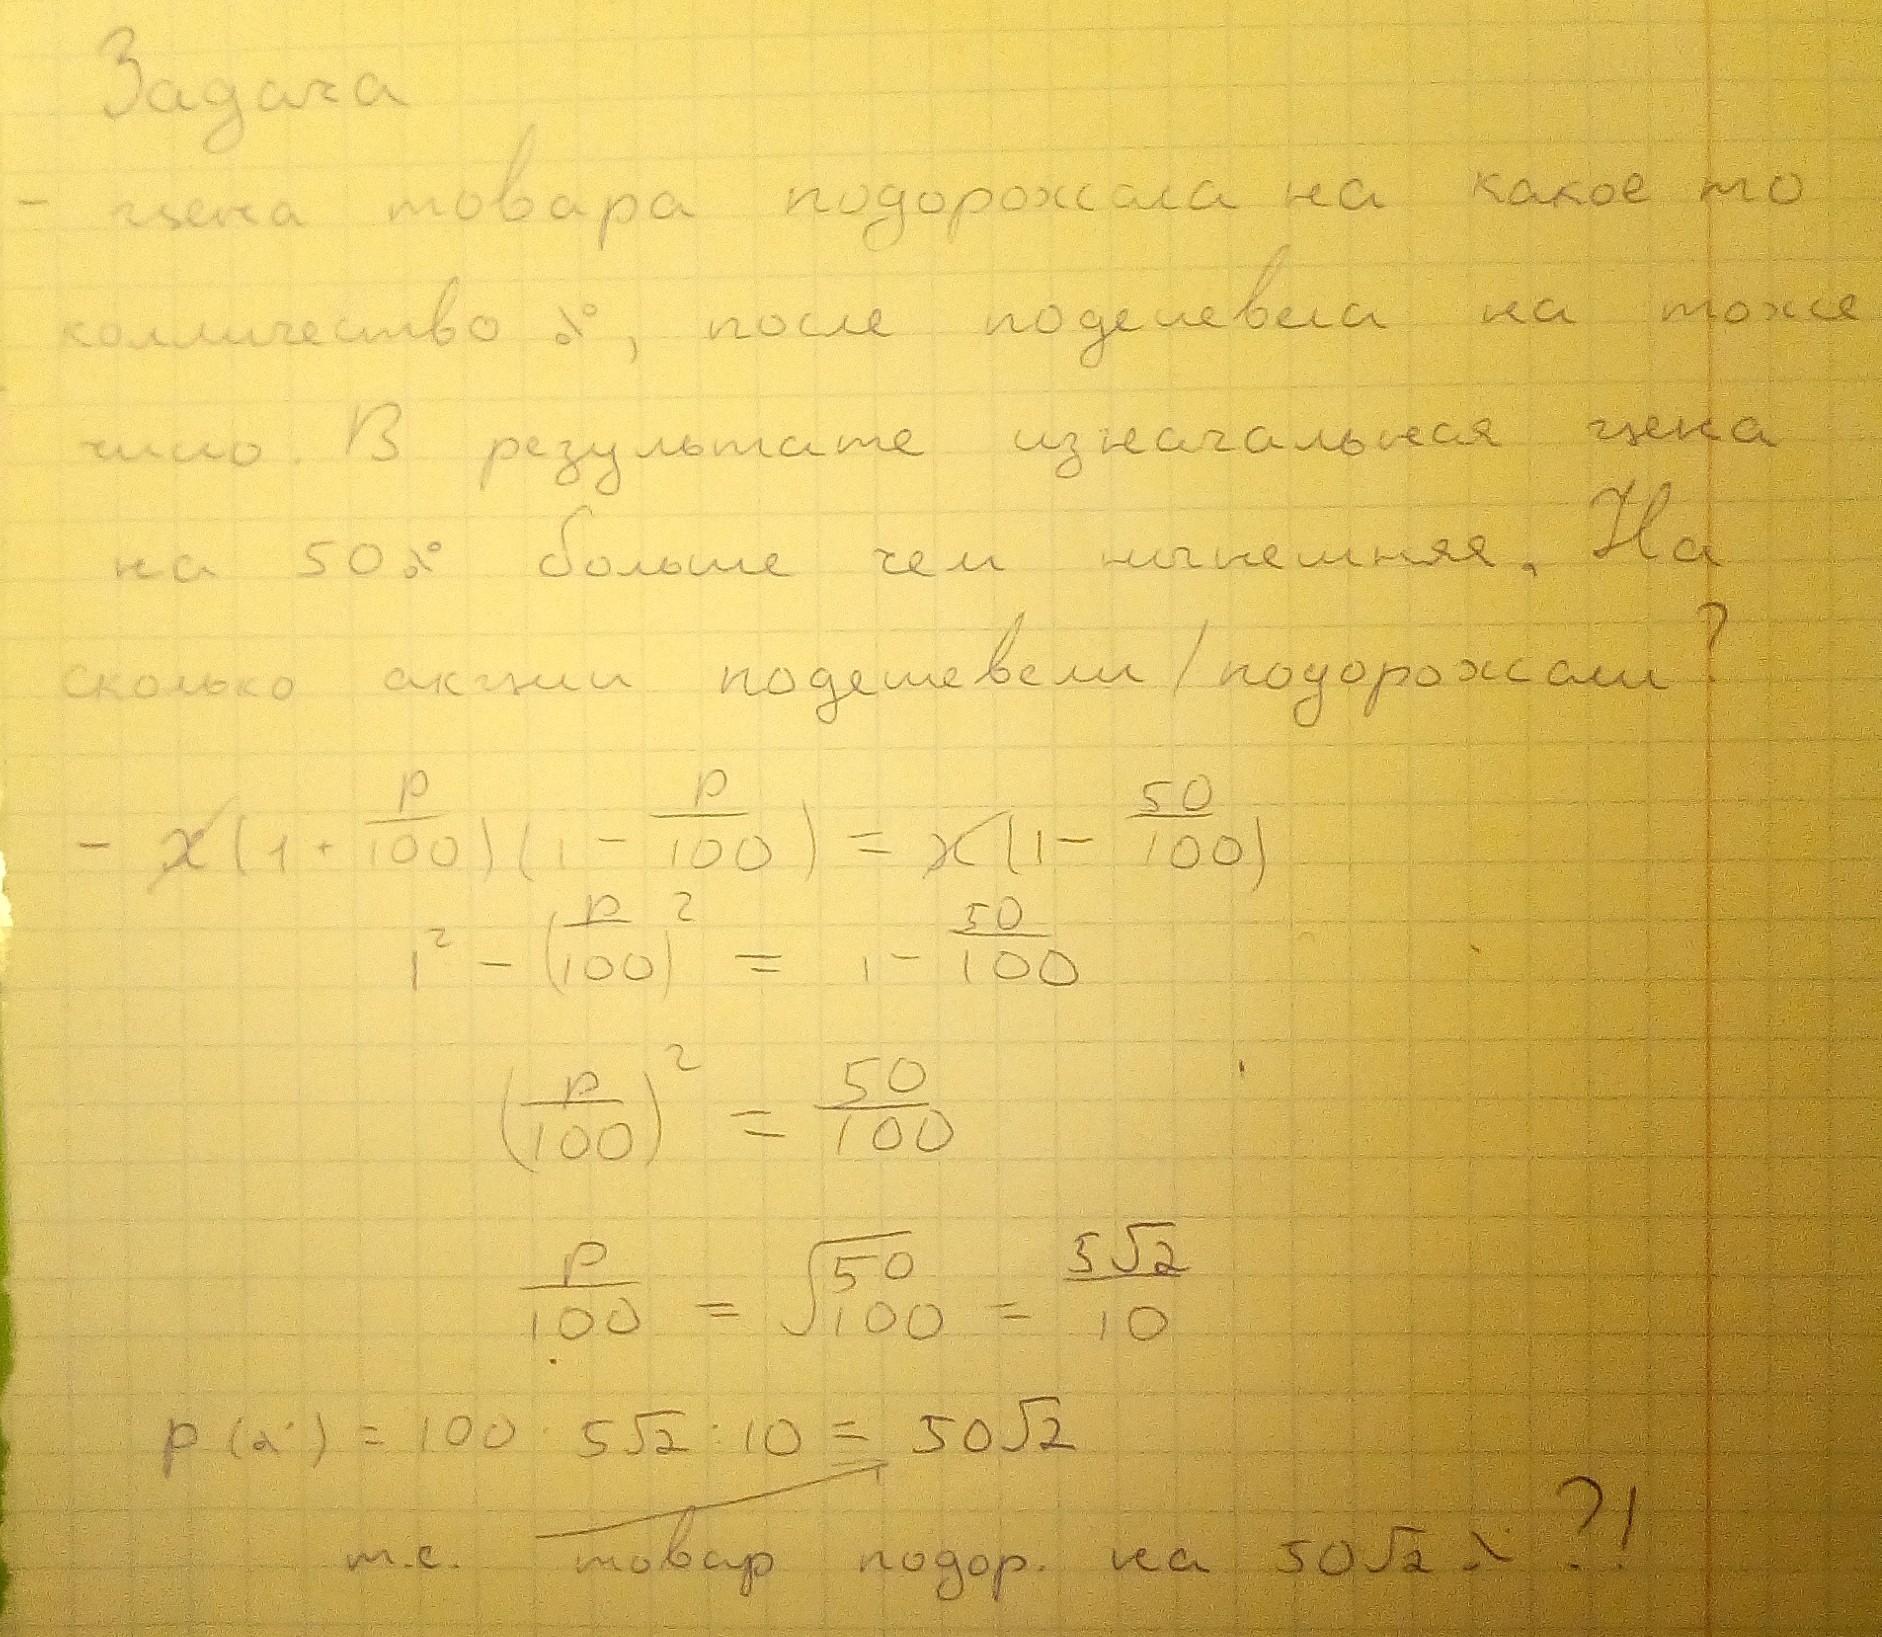 Задача
- цена товара подорожала на какое то
колличество %, после подешевела на тоже
число. В результате изначальная цена
на 50% больше чем нынешняя. На
сколько акции подешевели/подорожали?
- x(1 + p/100)(1 - p/100) = x(1 - 50/100)
1² - (p/100)² = 1 - 50/100
(p/100)² = 50/100
p/100 = √50/100 = 5√2/10
p(%) = 100 · 5√2 : 10 = 50√2
т.е. товар подор. на 50√2 % ?!